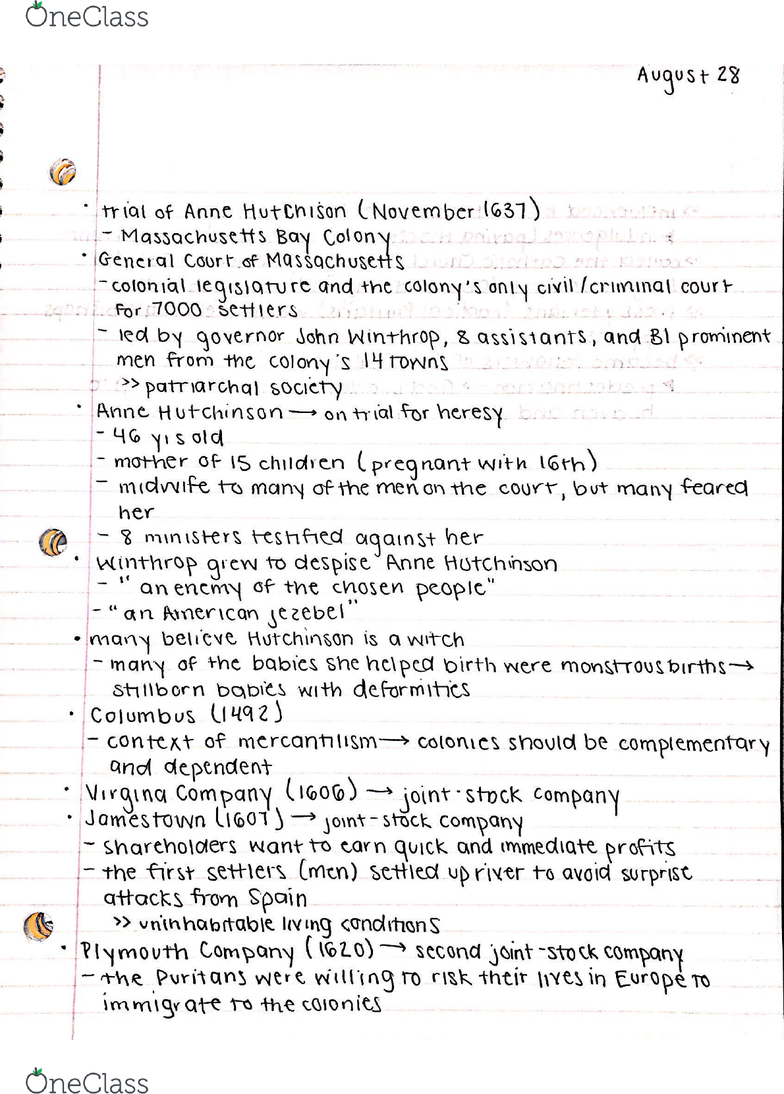 OneClass
August 28
· trial of Anne Hutchison (November 1637)
- Massachusetts Bay Colony
· General Court of Massachusetts
- colonial legislature and the colony's only civil/criminal court
for 7000 settlers
- led by governor John Winthrop, 8 assistants, and 31 prominent
men from the colony's 14 towns
>> patriarchal society
· Anne Hutchinson → on trial for heresy
- 46 yrs old
- mother of 15 children (pregnant with 16th)
- midwife to many of the men on the court, but many feared
her
- 8 ministers testified against her
· Winthrop grew to despise Anne Hutchinson
- "an enemy of the chosen people"
- "an American jezebel"
· many believe Hutchinson is a witch
- many of the babies she helped birth were monstrous births →
stillborn babies with deformities
· Columbus (1492)
- context of mercantilism → colonies should be complementary
and dependent
· Virgina Company (1606) → joint-stock company
· Jamestown (1607) → joint-stock company
- shareholders want to earn quick and immediate profits
- the first settlers (men) settled upriver to avoid surprise
attacks from Spain
>> uninhabitable living conditions
· Plymouth Company (1620) → second joint-stock company
- the Puritans were willing to risk their lives in Europe to
immigrate to the colonies
OneClass